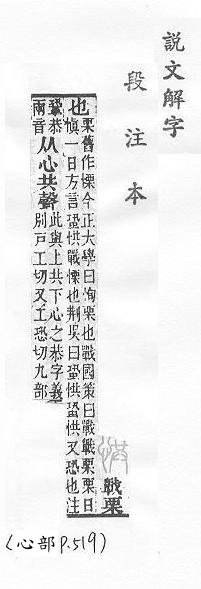 說文解字
段注本
戰栗
也
栗舊作慄今正大學曰恂栗也戰國策曰戰戰栗栗日
愼一日方言蛩㤨戰慄也荆吳曰蛩㤨蛩㤨又恐也注
鞏恭
兩音
从心共聲
此與上共下心之恭字義
別戶工切又工恐切九部
(心部P.519)